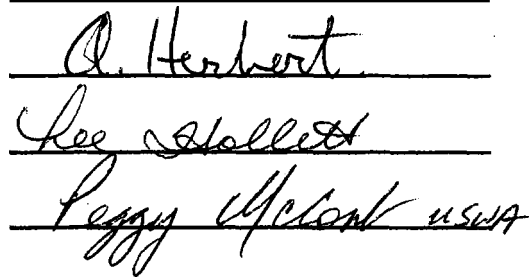 A. Herbert.
Lee Hollett
Peggy McComb USWA